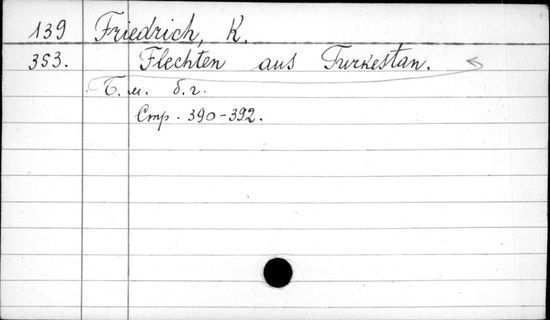 139 Friedrich, K.
353. Flechten aus Turkestan.
Б. м. б. г.
Стр. 390-392.